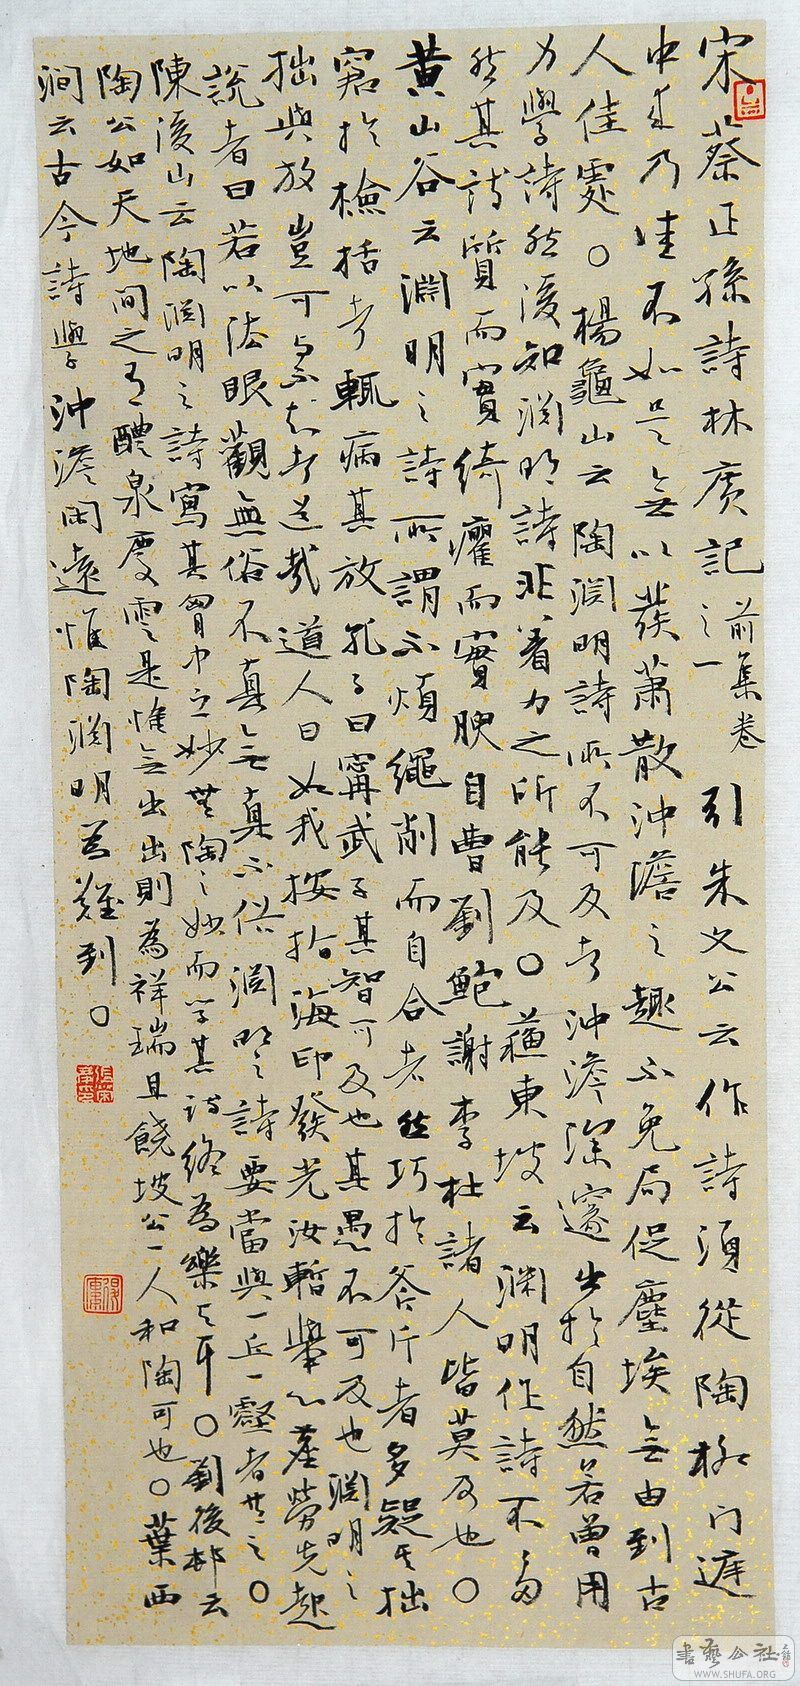 宋蔡正孫詩林廣記前集卷之一 引朱文公云作詩須從陶柳門庭
中來乃佳不如是無以發蕭散沖澹之趣不免局促塵埃無由到古
人佳處○楊龜山云陶淵明詩所不可及者沖澹深邃出於自然若曾用
力學詩然後知淵明詩非着力之所能及○蘇東坡云淵明作詩不多
然其詩質而實綺癯而實腴自曹劉鮑謝李杜諸人皆莫及也○
黃山谷云淵明之詩所謂不煩繩削而自合者然巧於斧斤者多疑其拙
窘於檢括者輒病其放孔子曰甯武子其智可及也其愚不可及也淵明之
拙與放豈可與不知者道哉道人曰如我按指海印發光汝暫舉心塵勞先起
說者曰若以法眼觀無俗不真若以世眼觀無真不俗淵明之詩要當與一丘一壑者共之○
陳後山云陶淵明之詩寫其胸中之妙無陶之妙而學其詩終為樂天耳○劉後村云
陶公如天地間之有醴泉慶雲是惟無出出則為祥瑞且饒坡公一人和陶可也○葉西
澗云古今詩學沖澹閑遠惟陶淵明為難到○
書藝公社
WWW.SHUFA.ORG